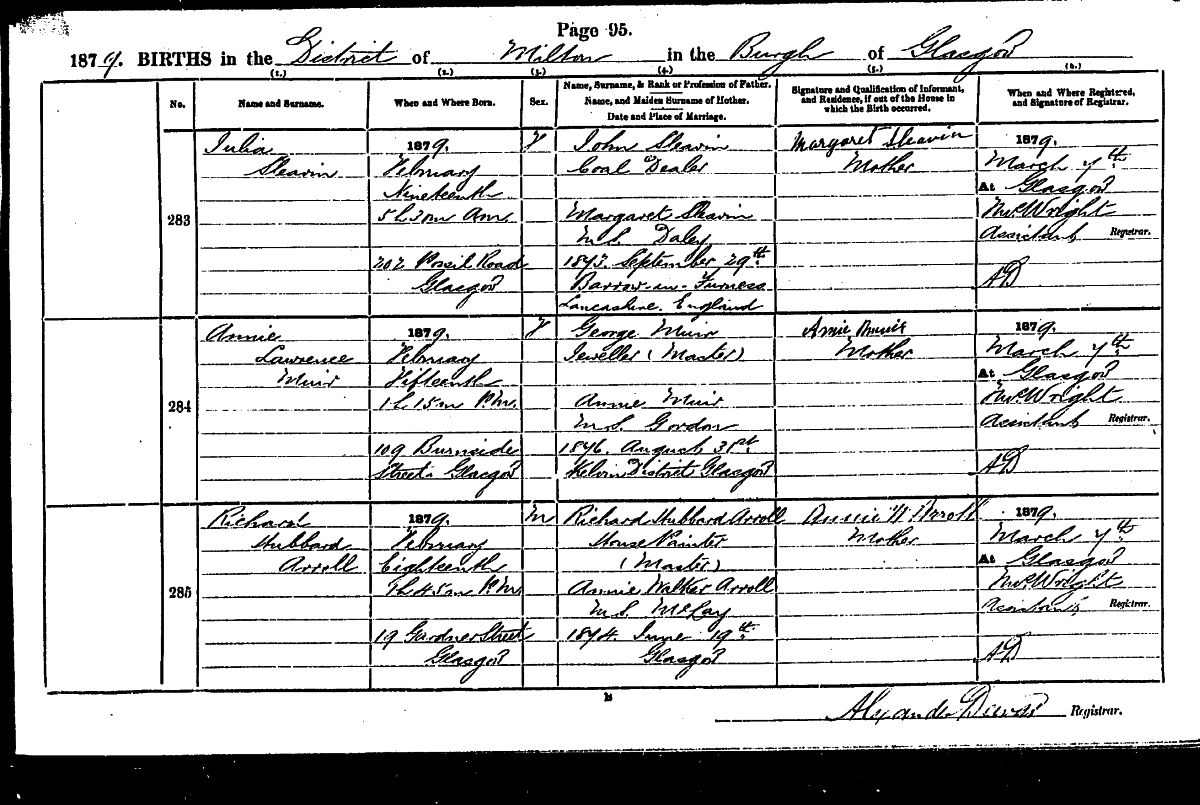 Page 95.
1879. BIRTHS in the District of Milton in the Burgh of Glasgow
(1.) (2.) (3.) (4.) (5.) (6.)
No. Name and Surname. When and Where Born. Sex. Name, Surname, & Rank or Profession of Father. Name, and Maiden Surname of Mother. Date and Place of Marriage. Signature and Qualification of Informant, and Residence, if out of the House in which the Birth occurred. When and Where Registered, and Signature of Registrar.
283
Julia
Slavin
1879.
February
Nineteenth
5h 3m A.M.
202 Possil Road
Glasgow
F
John Slavin
Coal Dealer
Margaret Slavin
M.S. Daley
1873. September 29th
Barrow-in-Furness
Lancashire. England
Margaret Slavin
Mother
1879.
March 7th
At Glasgow
Wright
Assistant Registrar.
AD
284
Annie
Lawrence
Muir
1879.
February
Fifteenth
1h 15m P.M.
109 Burnside
Street Glasgow
F
George Muir
Jeweller (Master)
Annie Muir
M.S. Gordon
1876. August 31st
Kelvin District Glasgow
Annie Muir
Mother
1879.
March 7th
At Glasgow
Wright
Assistant Registrar.
AD
285
Richard
Hubbard
Arroll
1879.
February
Eighteenth
7h 45m P.M.
19 Gardner Street
Glasgow
M
Richard Hubbard Arroll
House Painter
(Master)
Annie Walker Arroll
M.S. McLay
1874. June 19th
Glasgow
Annie W Arroll
Mother
1879.
March 7th
At Glasgow
Wright
Assistant Registrar.
AD
Alexander Registrar.